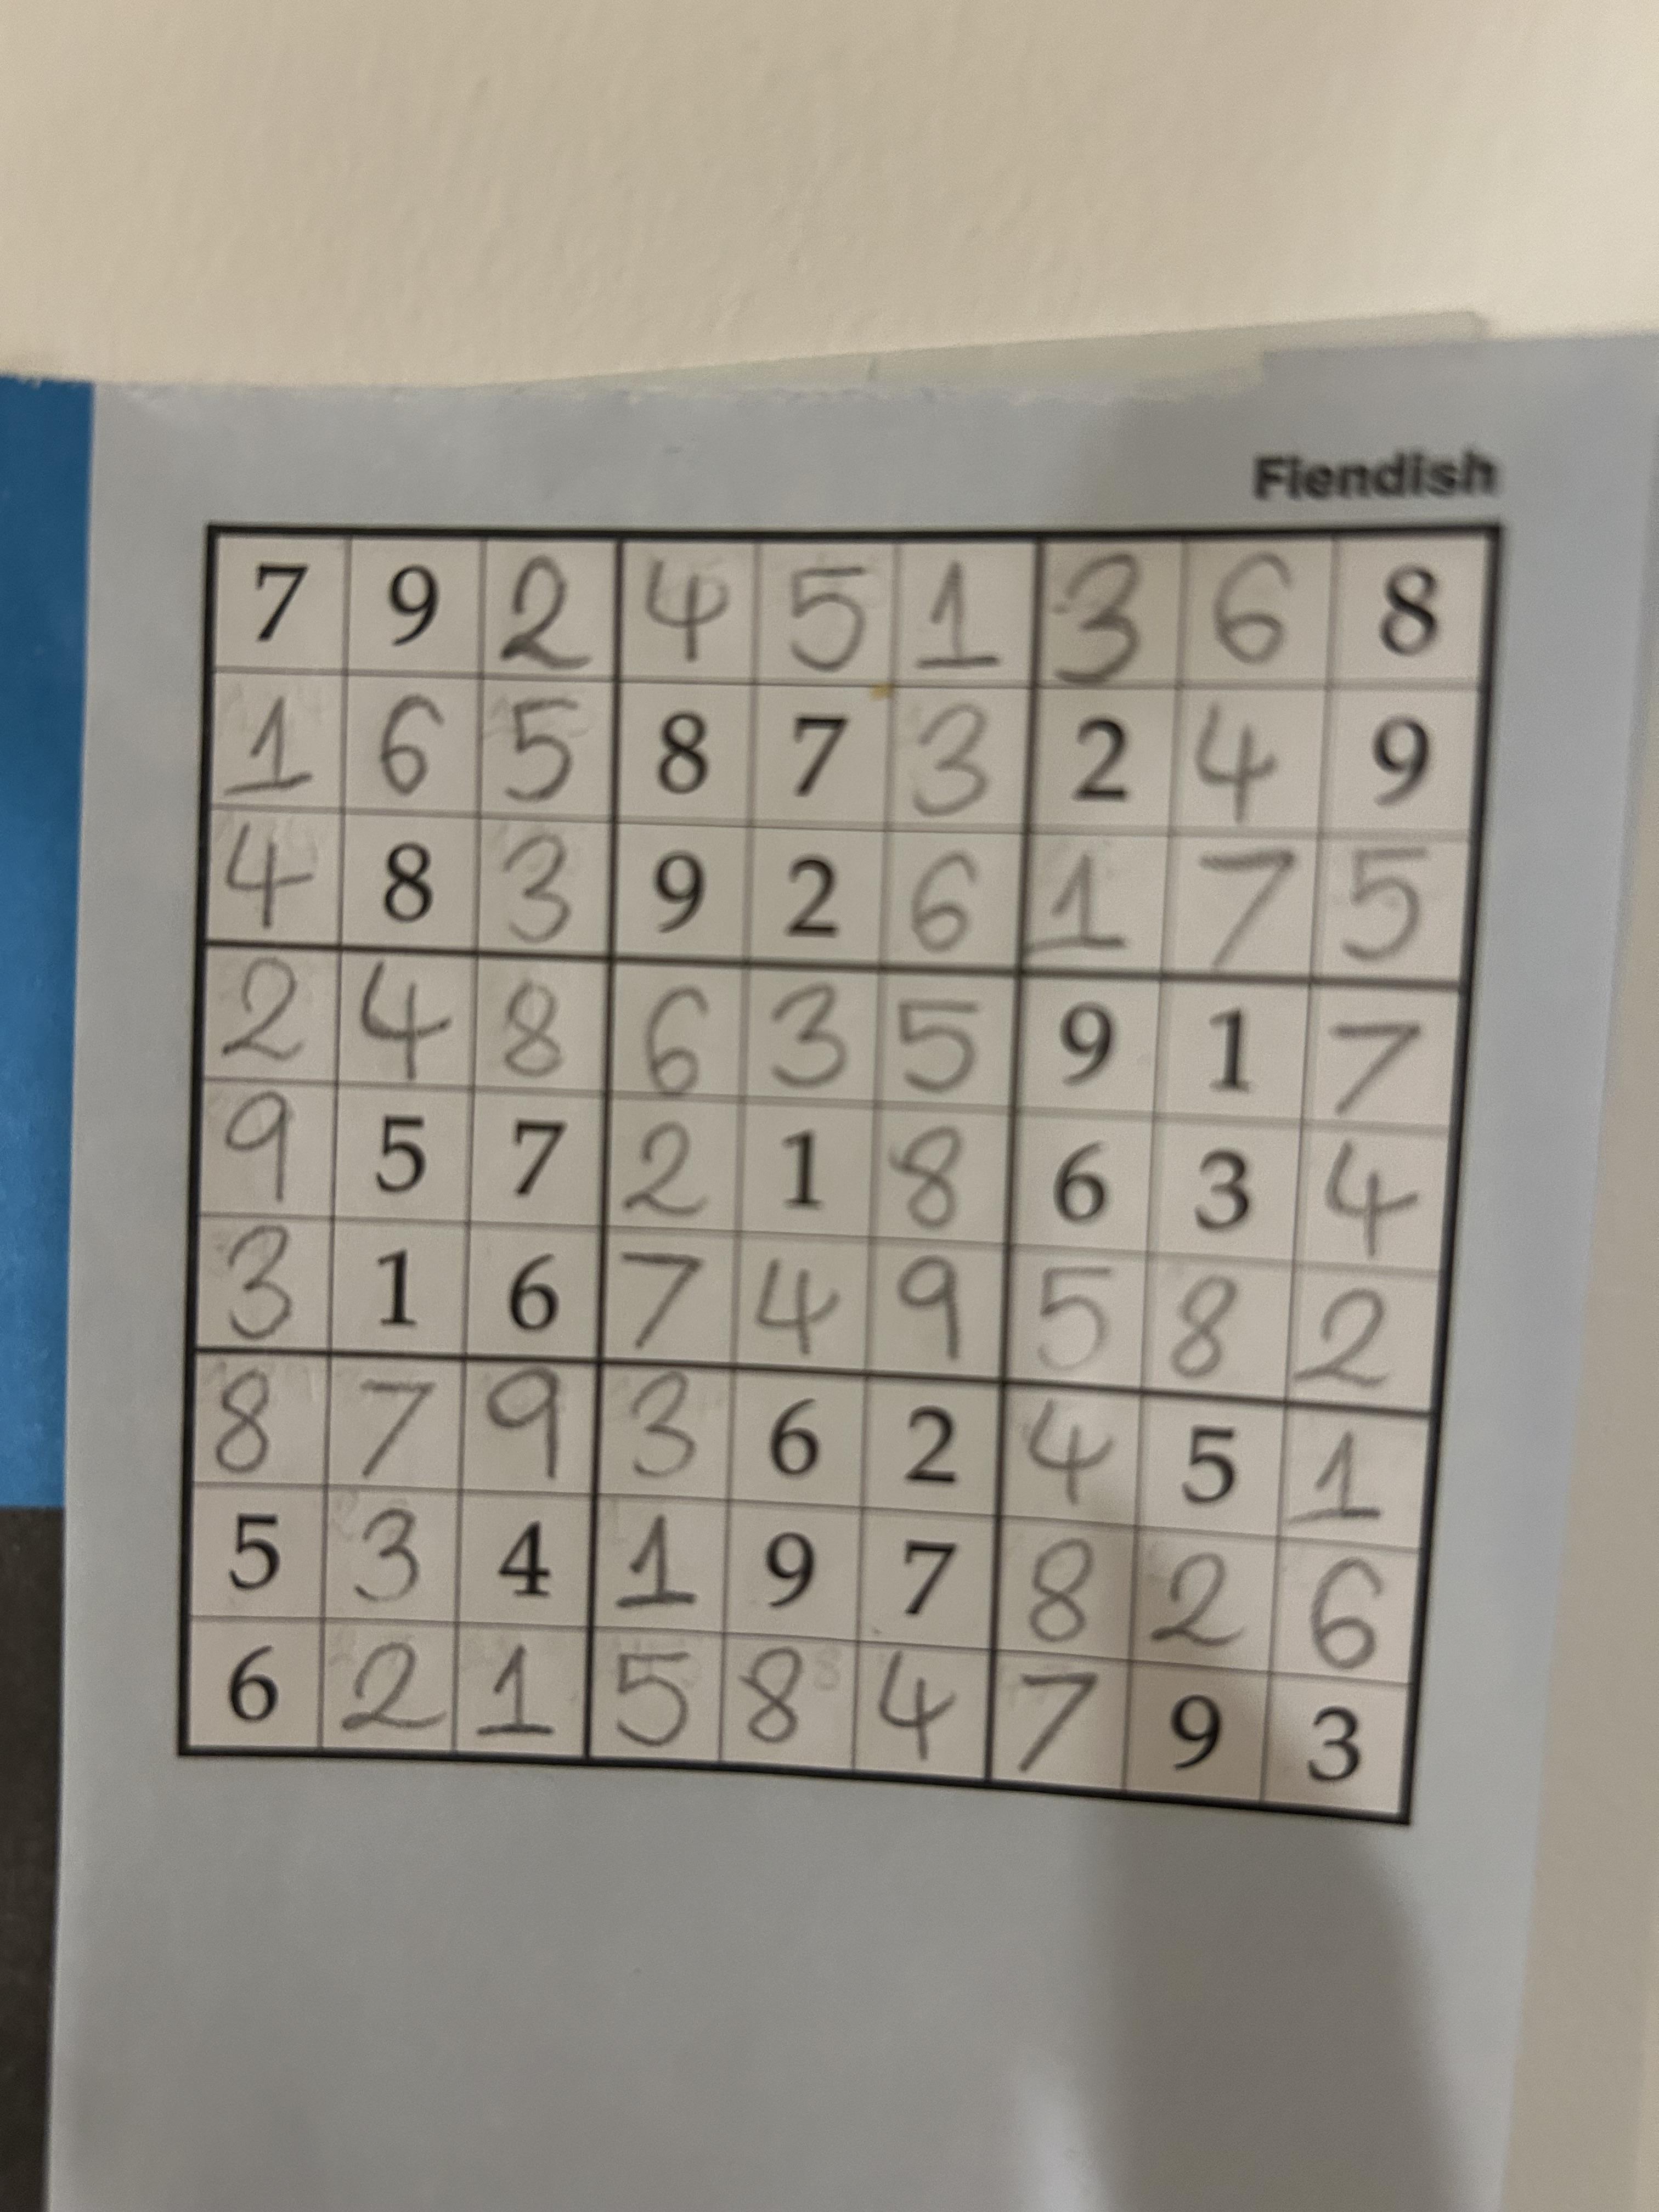 Fiendish
7 9 2 4 5 1 3 6 8
1 6 5 8 7 3 2 4 9
4 8 3 9 2 6 1 7 5
2 4 8 6 3 5 9 1 7
9 5 7 2 1 8 6 3 4
3 1 6 7 4 9 5 8 2
8 7 9 3 6 2 4 5 1
5 3 4 1 9 7 8 2 6
6 2 1 5 8 4 7 9 3